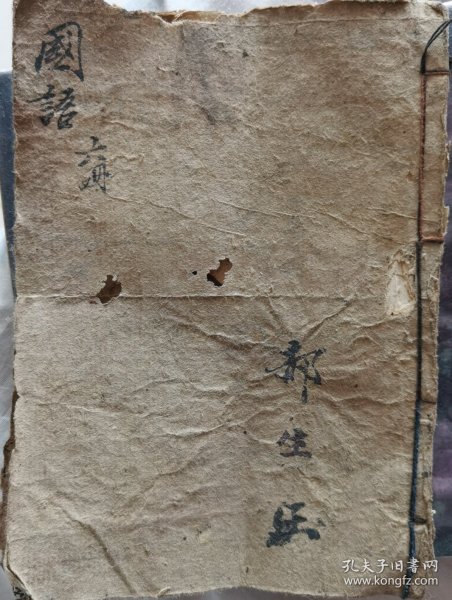 國語
六册
郝生
孔夫子旧书网
www.kongfz.com